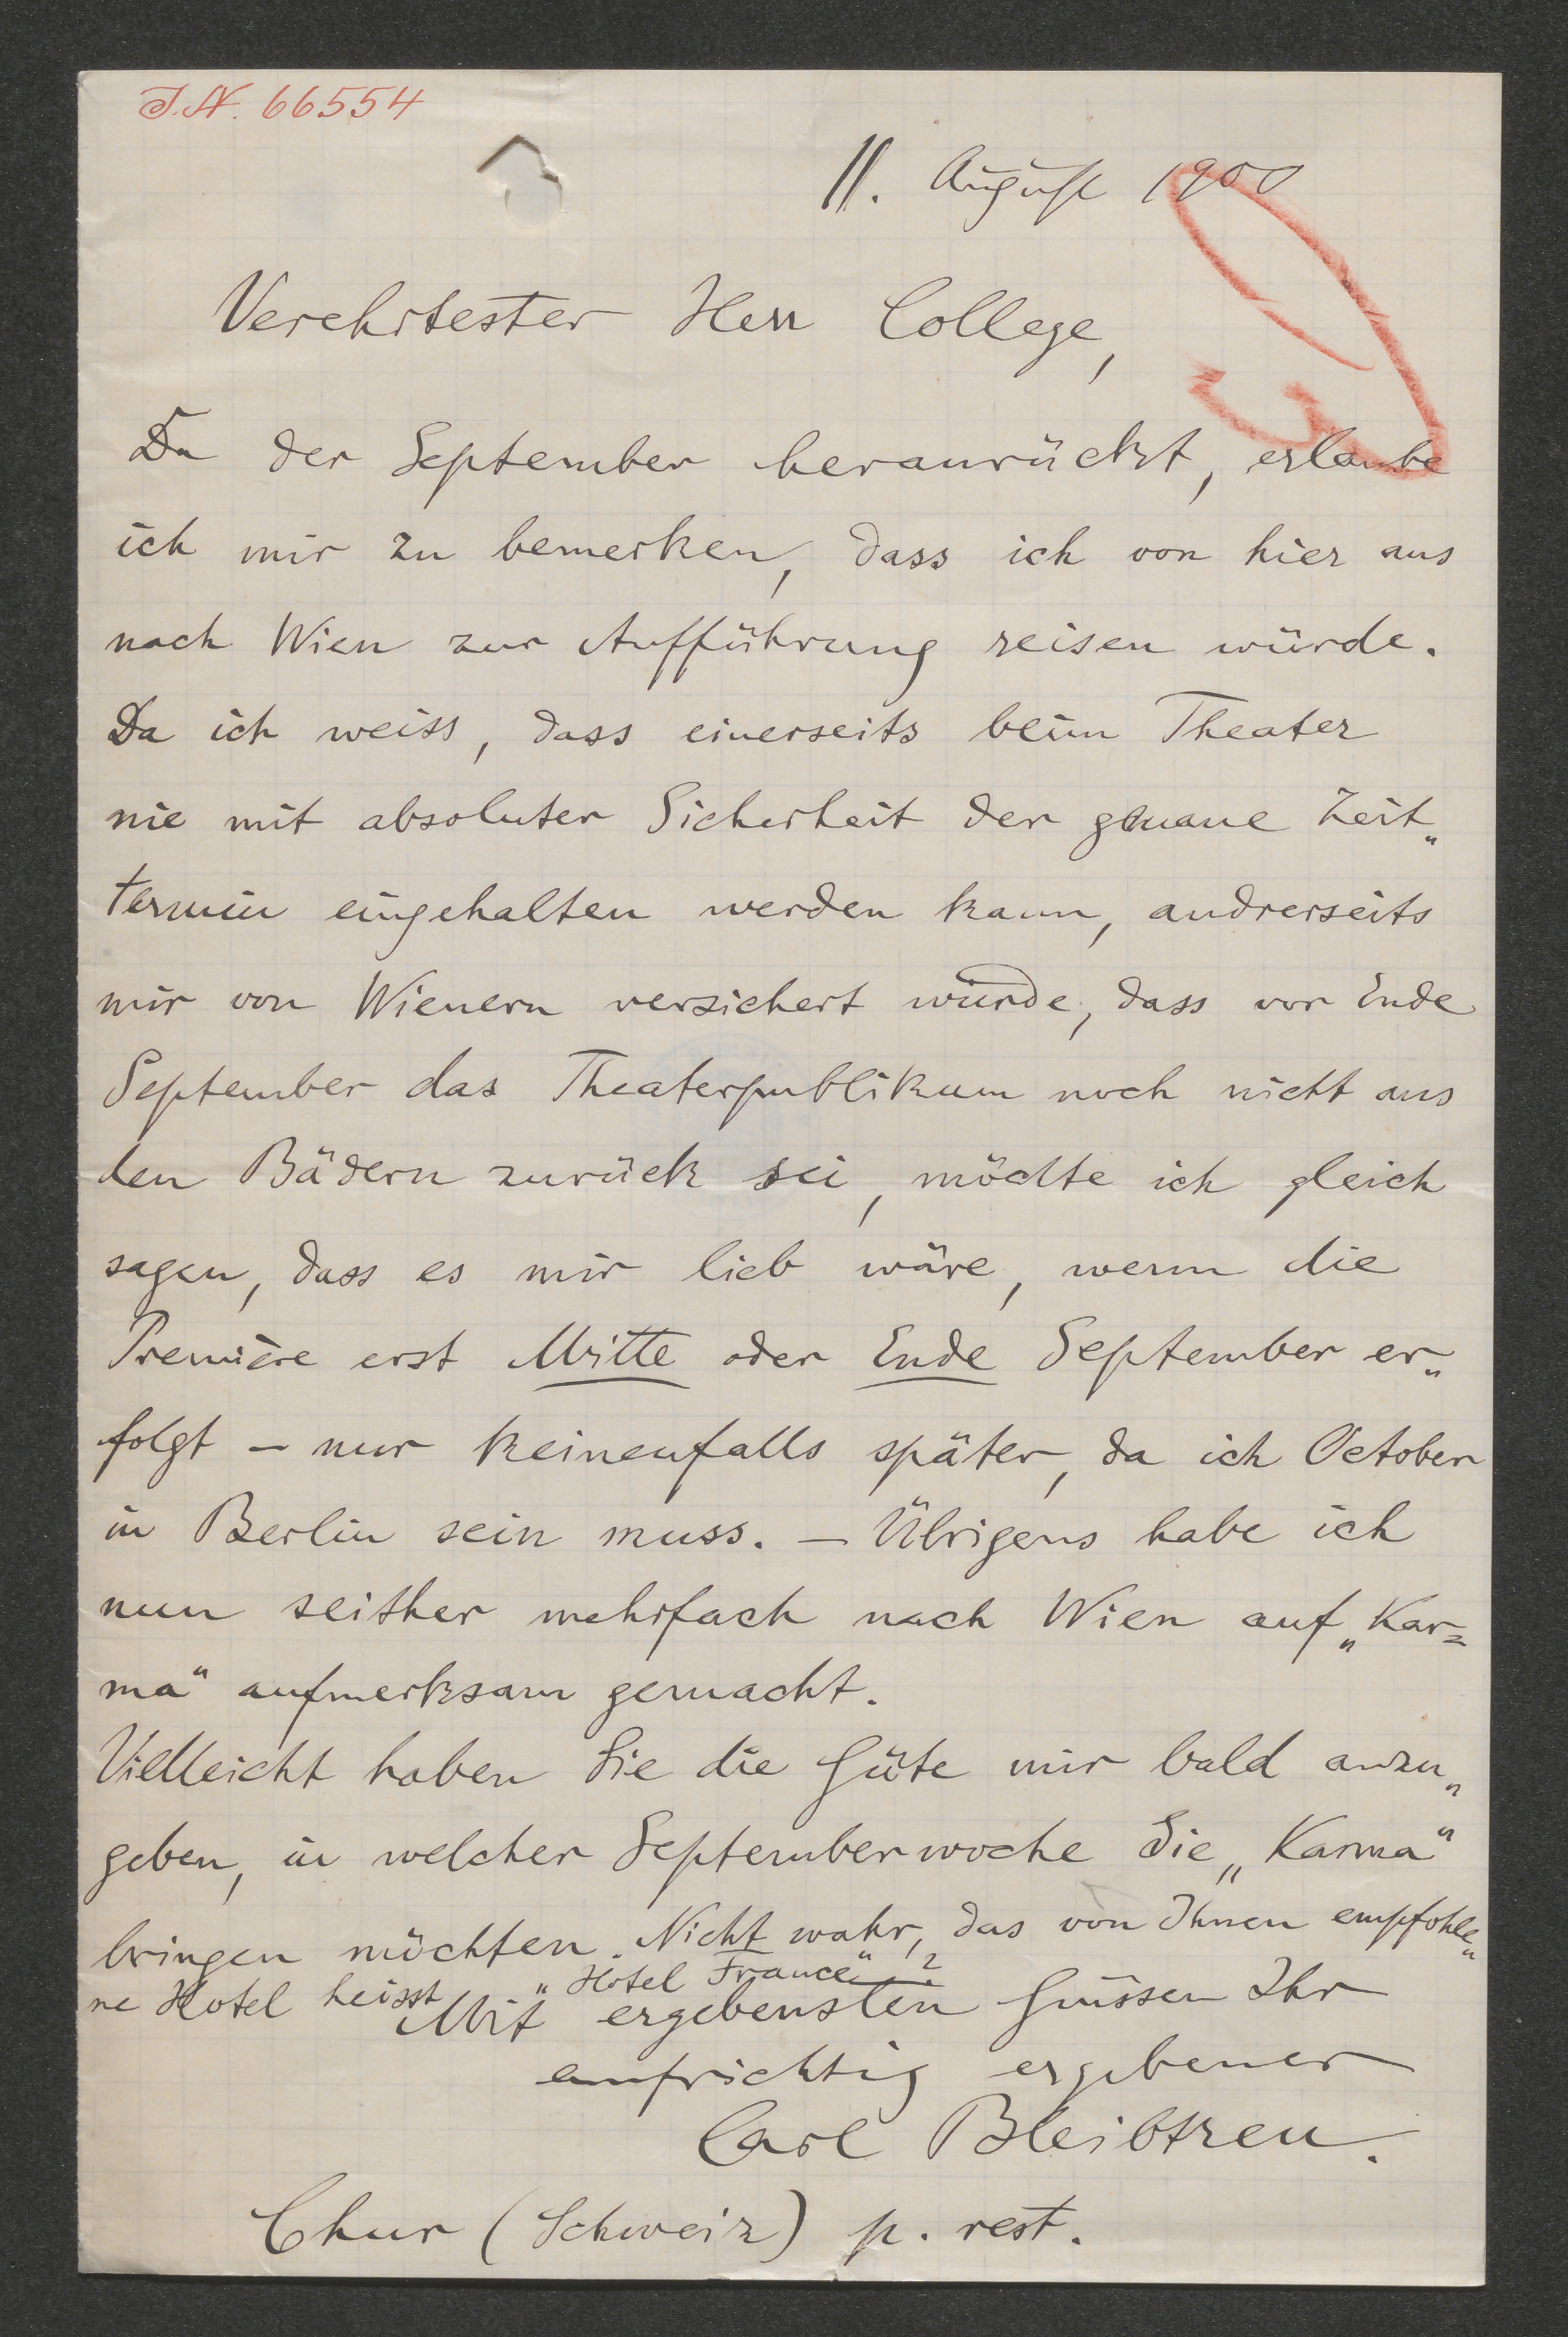 J.N. 66554
11. August 1900
Verehrtester Herr College,
Da der September heranrückt, erlaube
ich mir zu bemerken, dass ich von hier aus
nach Wien zur Aufführung reisen würde.
Da ich weiss, dass einerseits beim Theater
nie mit absoluter Sicherheit der genaue Zeit„
termin eingehalten werden kann, andrerseits
mir von Wienern versichert wurde, dass vor Ende
September das Theaterpublikum noch nicht aus
den Bädern zurück sei, möchte ich gleich
sagen, dass es mir lieb wäre, wenn die
Première erst Mitte oder Ende September er„
folgt – nur keinenfalls später, da ich October
in Berlin sein muss. – Übrigens habe ich
nun seither mehrfach nach Wien auf „Kar=
ma“ aufmerksam gemacht.
Vielleicht haben Sie die Güte mir bald anzu„
geben, in welcher Septemberwoche Sie „Karma“
bringen möchten. Nicht wahr, das von Ihnen empfohle„
ne Hotel heisst „Hotel France“?
Mit ergebensten Grüssen Ihr
aufrichtig ergebener
Carl Bleibtreu.
Chur (Schweiz) p. rest.